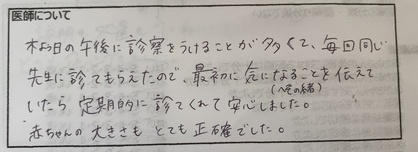 医師について
木曜日の午後に診察をうけることが多くて、毎回同じ
先生に診てもらえたので、最初に気になることを伝えて
(へその緒)
いたら定期的に診てくれて安心しました。
赤ちゃんの大きさもとても正確でした。